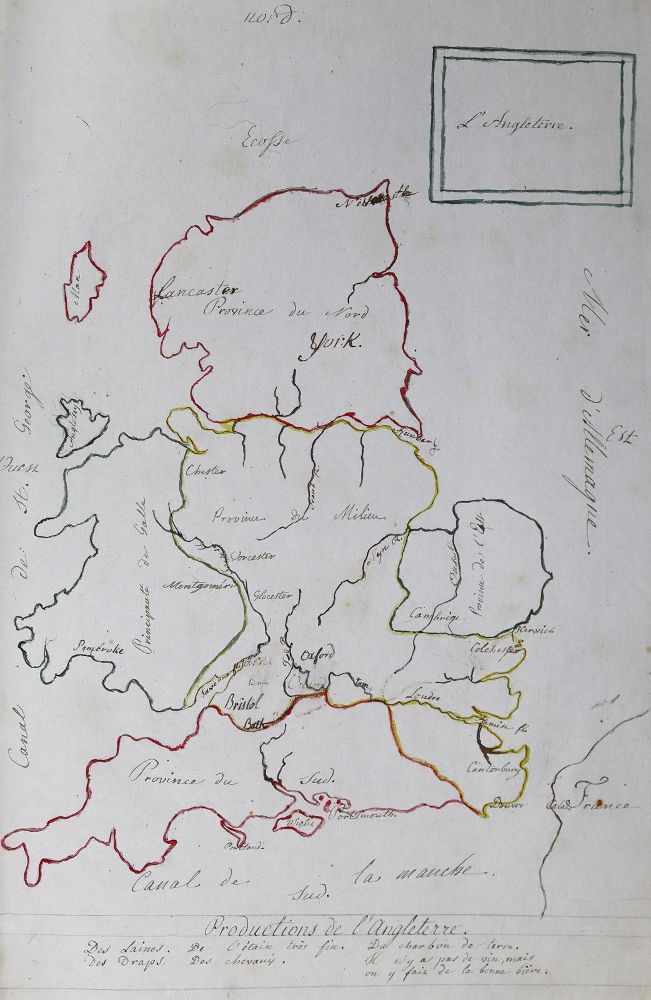 nord.
L'Angleterre.
Ecosse
Man
Lancaster
Province du Nord
York.
Mer d'Allemagne.
Est
Ouest
Canal de St. George.
Chester
Province du Milieu
Principauté de Galle
Worcester
Montgomeri
Glocester
Province de l'Est
Cambrige
Harwich
Colchester
Pembroke
Oxford
Bristol
Bath
Londre
Cantorbury
Douvre
France
Province du Sud.
Portsmouth.
Wight
Portland.
Canal de la manche.
Sud.
Productions de l'Angleterre.
Des Laines. De l'étain très fin. Du charbon de terre.
Des Draps. Des chevaux. Il n'y a pas de vin, mais
on y fait de la bonne bière.